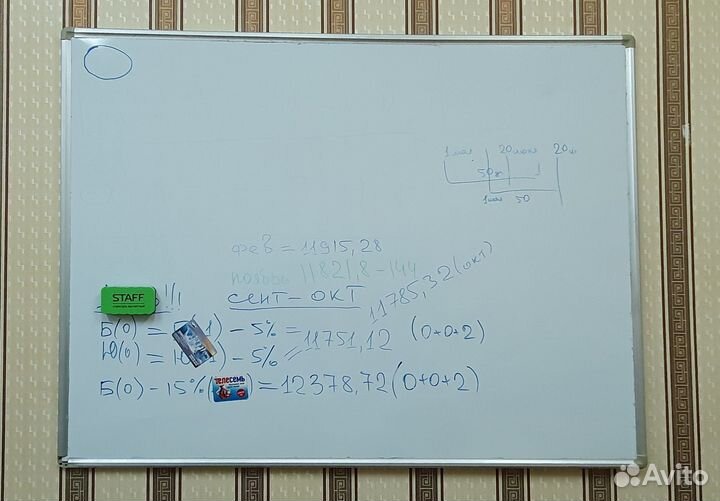 1 мая 20 июня 20 ию
50
1 мая 50
фев = 11915,28
ноябрь 11821,8 - 144
сент - окт 11785,32 (окт)
STAFF
!!!
Б(0) = Б( 1) - 5% = 11751,12 (0+0+2)
Ю(0) = Ю( 1) - 5%
Б(0) - 15% ( ) = 12378,72 (0+0+2)
ТЕЛЕСЕМЬ
Avito